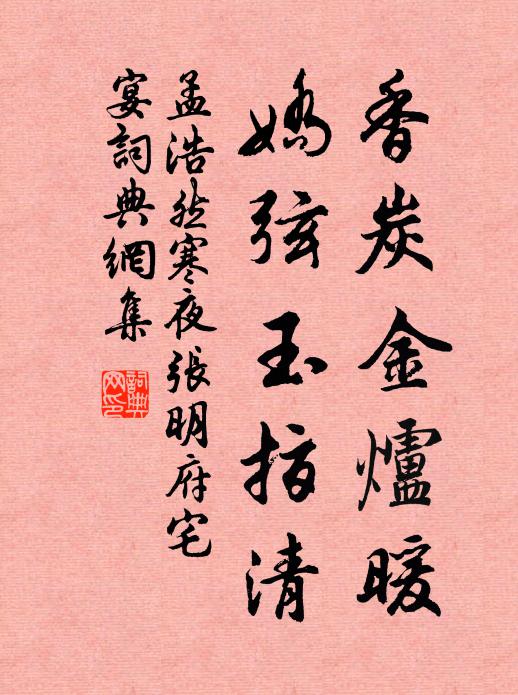 香炭金爐暖
嬌弦玉指清
孟浩然寒夜張明府宅
宴詞典網集
詞典網印